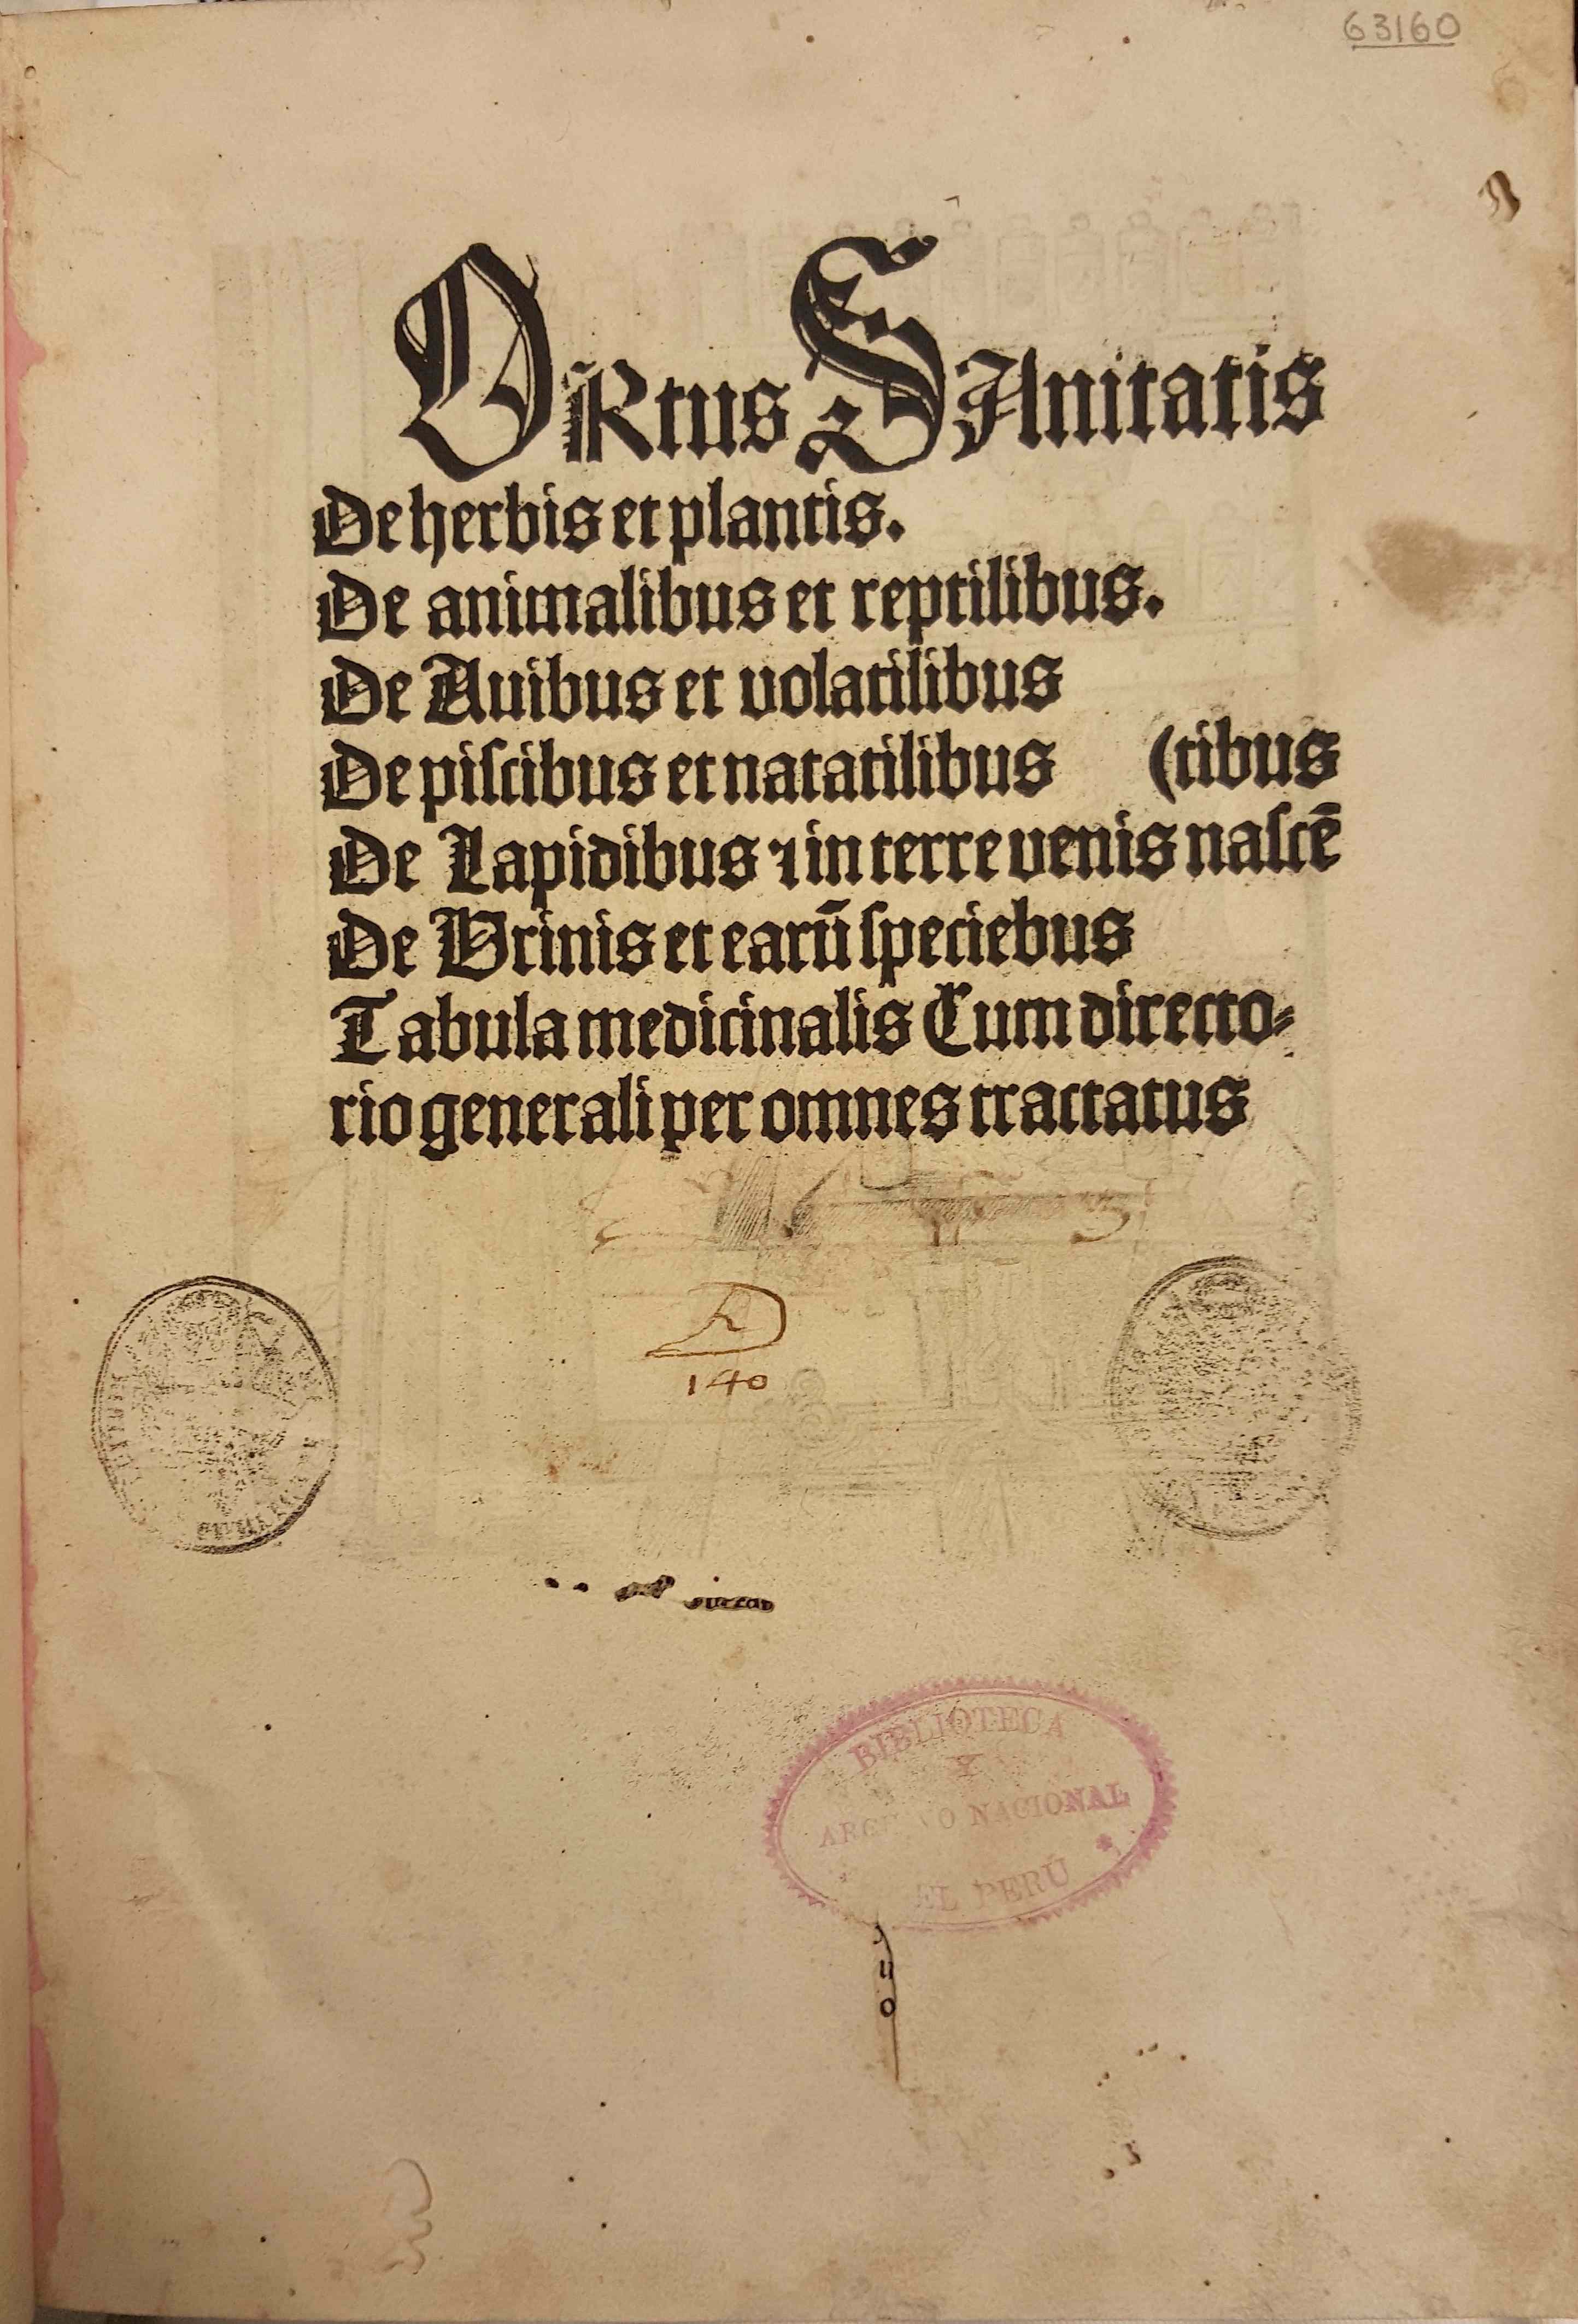 63160
ORtus SAnitatis
De herbis et plantis.
De animalibus et reptilibus.
De Auibus et volatilibus
De piſcibus et natatilibus (tibus
De Lapidibus ⁊ in terre venis naſcē
De Vrinis et earū ſpeciebus
Tabula medicinalis Cum directo⸗
rio generali per omnes tractatus
140
BIBLIOTECA
Y
ARCHIVO NACIONAL
EL PERÚ